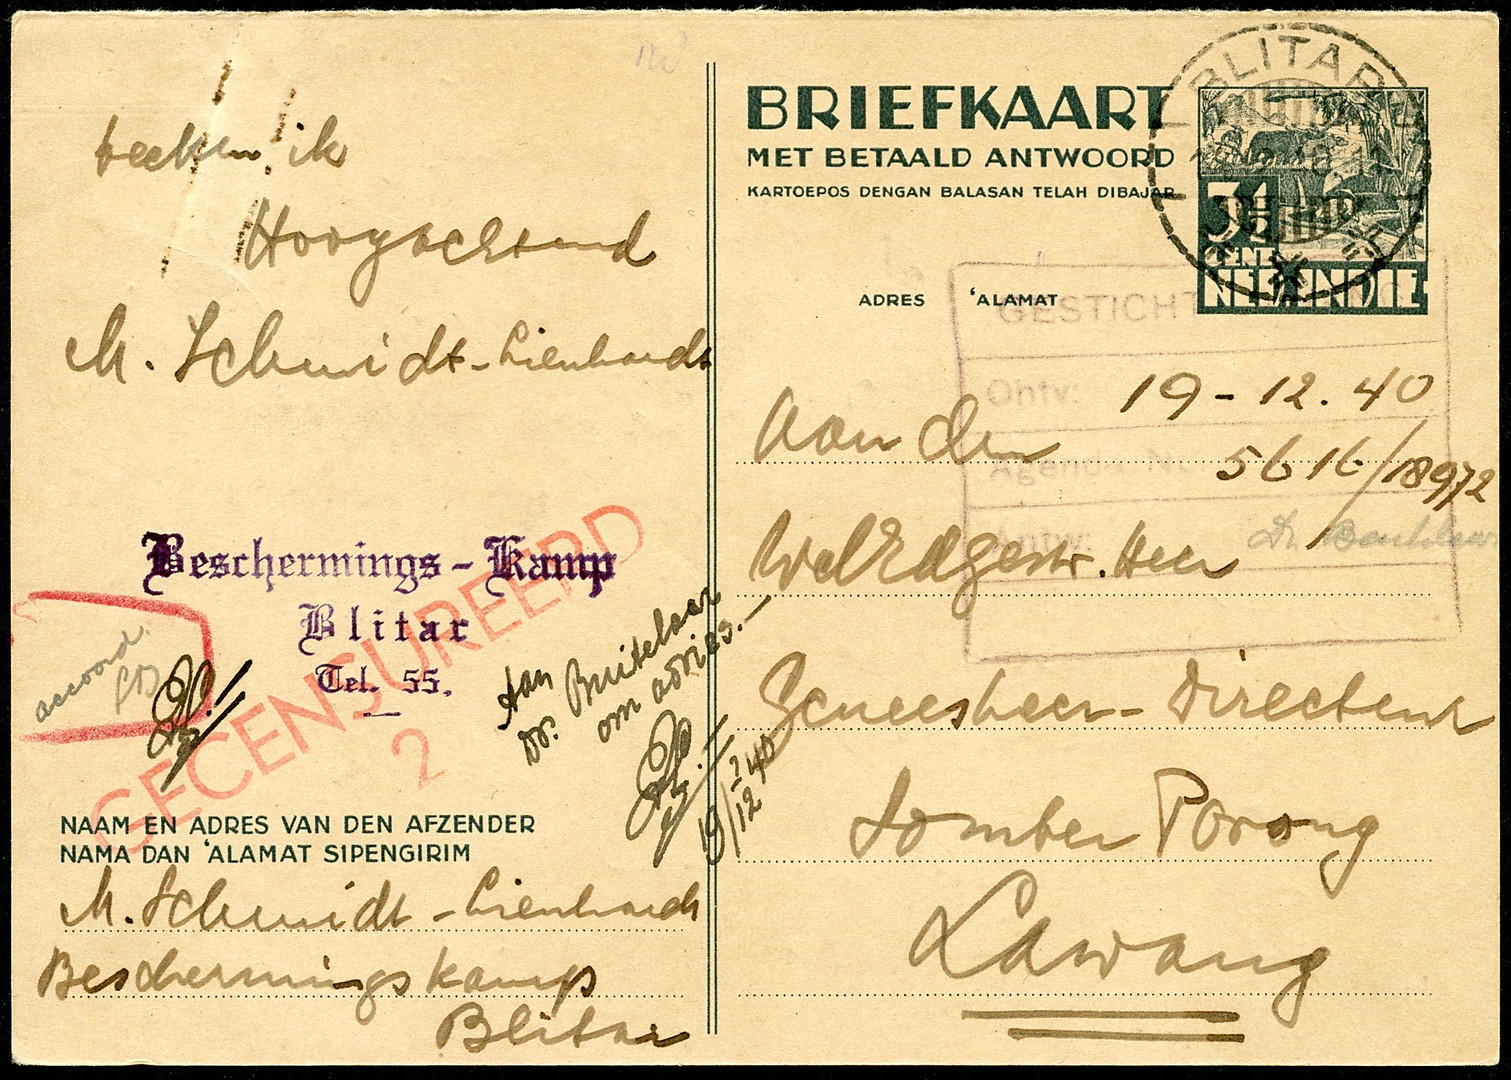 teeken ik
Hoogachtend
M. Schmidt-Lienhardt
Beschermings-Kamp
Blitar
Tel. 55.
GECENSUREERD
2
accoord
Aan
Dr. Buitelaar
om advies.-
19/12 40
NAAM EN ADRES VAN DEN AFZENDER
NAMA DAN 'ALAMAT SIPENGIRIM
M. Schmidt-Lienhardt
Beschermingskamp
Blitar
BRIEFKAART
MET BETAALD ANTWOORD
KARTOEPOS DENGAN BALASAN TELAH DIBAJAR
BLITAR
3½
CENT
NED. INDIE
ADRES 'ALAMAT
GESTICHT
Ontv: 19-12.40
Agenda No 5616/18972
Antw:
Aan den
WelEdgestr. Heer
Geneesheer-Directeur
Somber Porong
Lawang